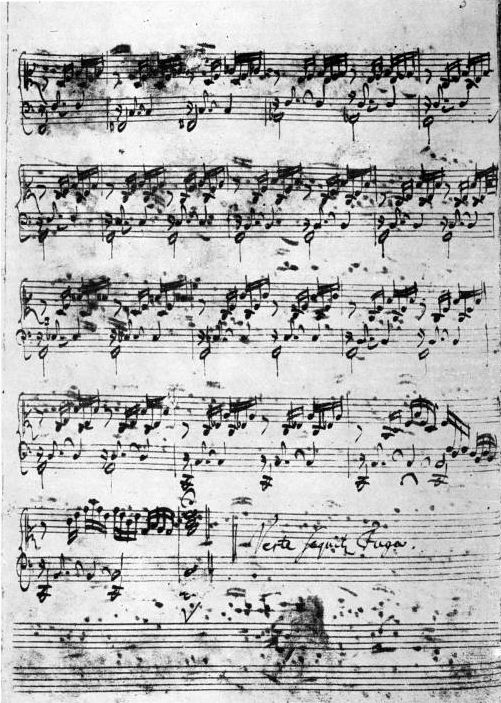 Verte sequit Fuga.